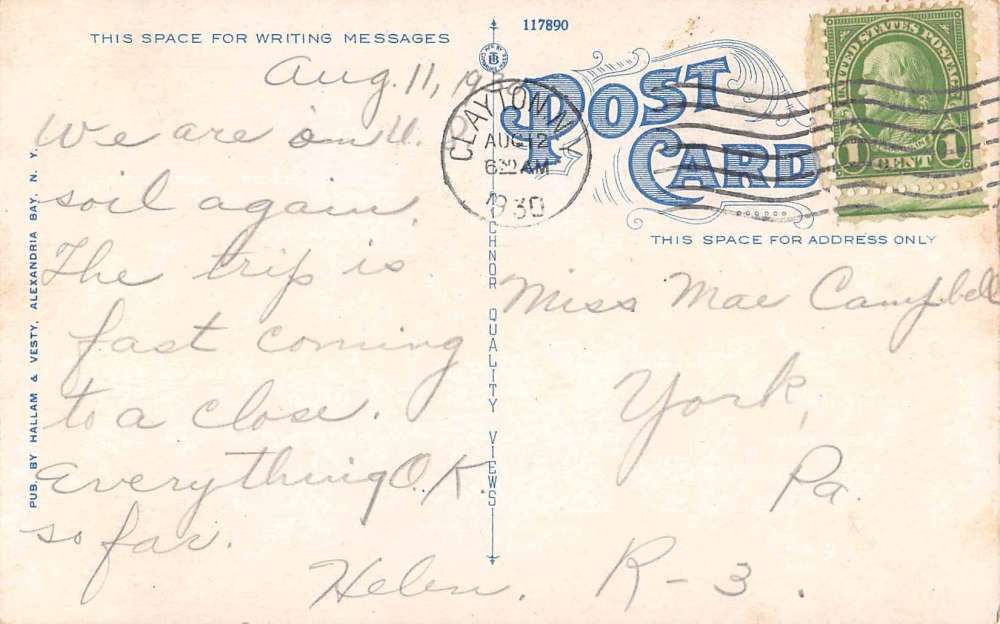 THIS SPACE FOR WRITING MESSAGES
117890
POST
CARD
UNITED STATES POSTAGE
1 CENT 1
CLAYTON, N.Y.
AUG 12
6 AM
1930
THIS SPACE FOR ADDRESS ONLY
PUB. BY HALLAM & VESTY, ALEXANDRIA BAY, N. Y.
QUALITY VIEWS
Aug. 11, 19
We are on U.
soil again.
The trip is
fast coming
to a close.
Everything O.K.
so far.
Helen.
Miss Mae Campbell
York,
Pa.
R-3.